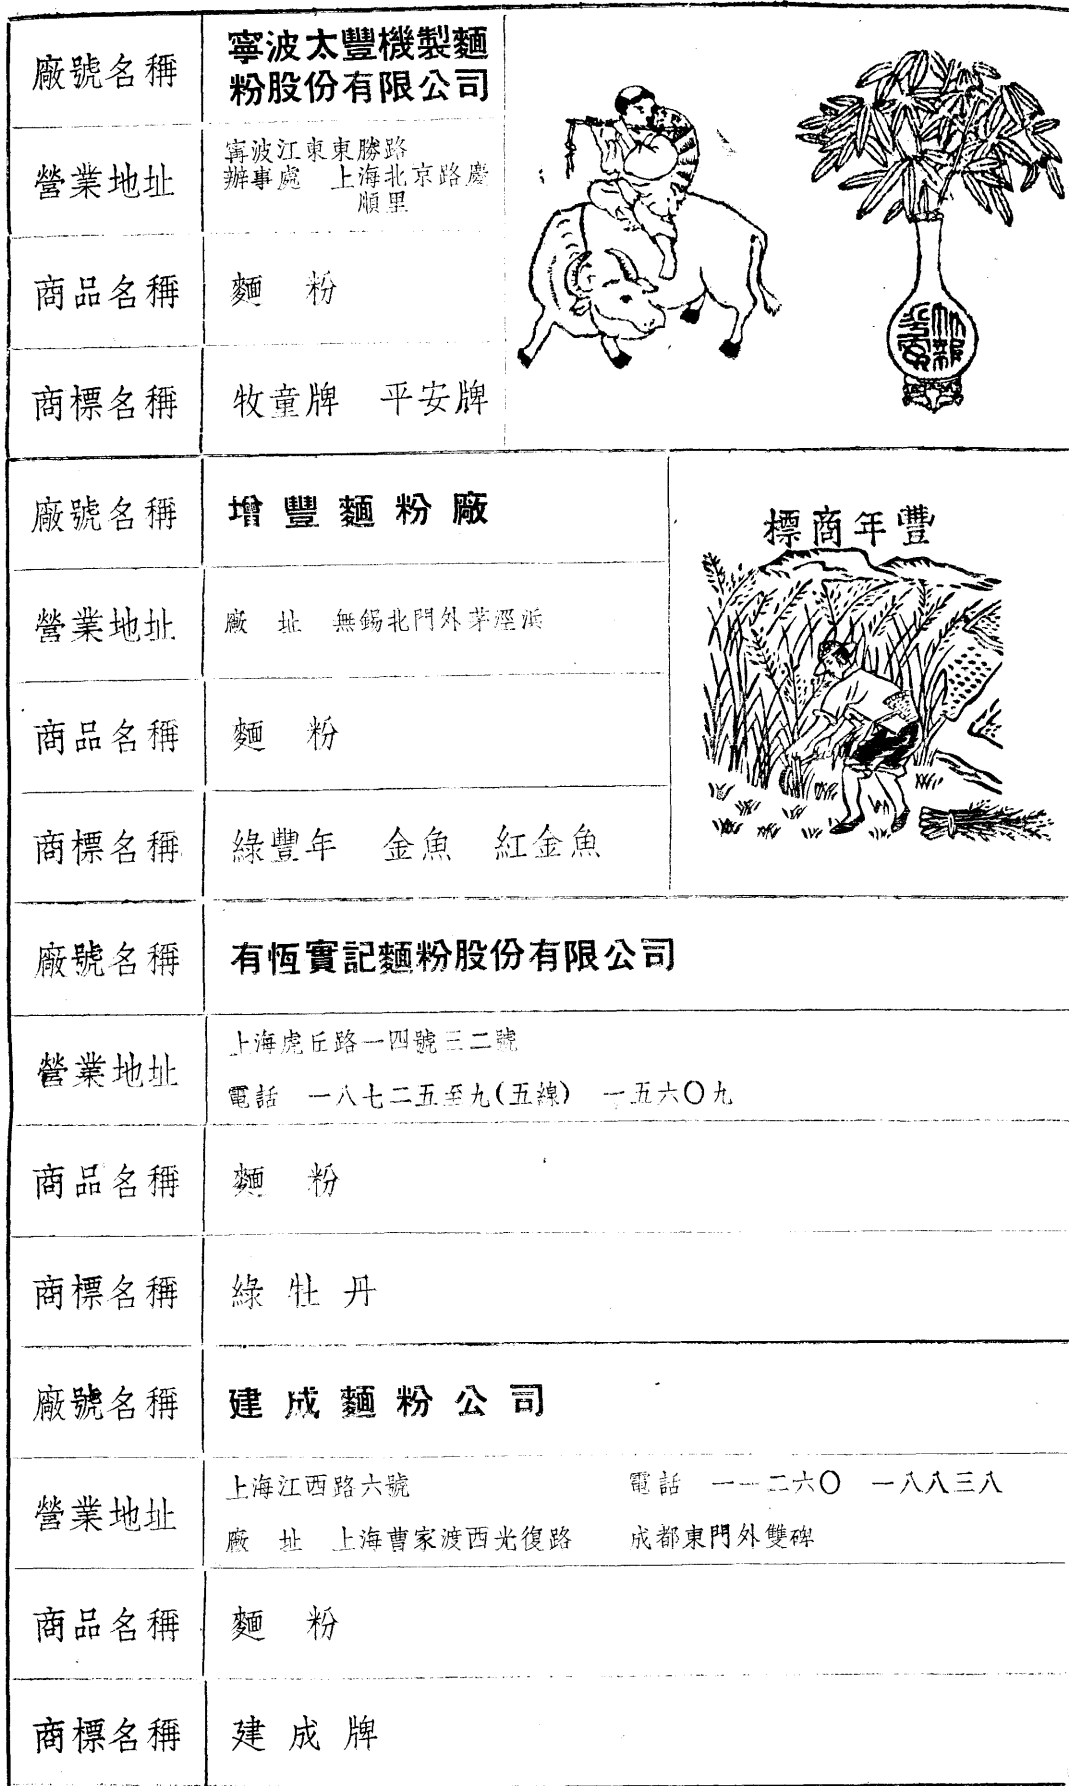 廠號名稱 寧波太豐機製麵
粉股份有限公司
營業地址 寗波江東東勝路
辦事處 上海北京路慶
順里
商品名稱 麵 粉
商標名稱 牧童牌 平安牌
竹報平安
廠號名稱 增豐麵粉廠
營業地址 廠 址 無錫北門外茅涇浜
商品名稱 麵 粉
商標名稱 綠豐年 金魚 紅金魚
標商年豐
廠號名稱 有恆實記麵粉股份有限公司
營業地址 上海虎丘路一四號三二號
電話 一八七二五至九(五線) 一五六〇九
商品名稱 麵 粉
商標名稱 綠牡丹
廠號名稱 建成麵粉公司
營業地址 上海江西路六號 電話 一一二六〇 一八八三八
廠 址 上海曹家渡西光復路 成都東門外雙碑
商品名稱 麵 粉
商標名稱 建成牌